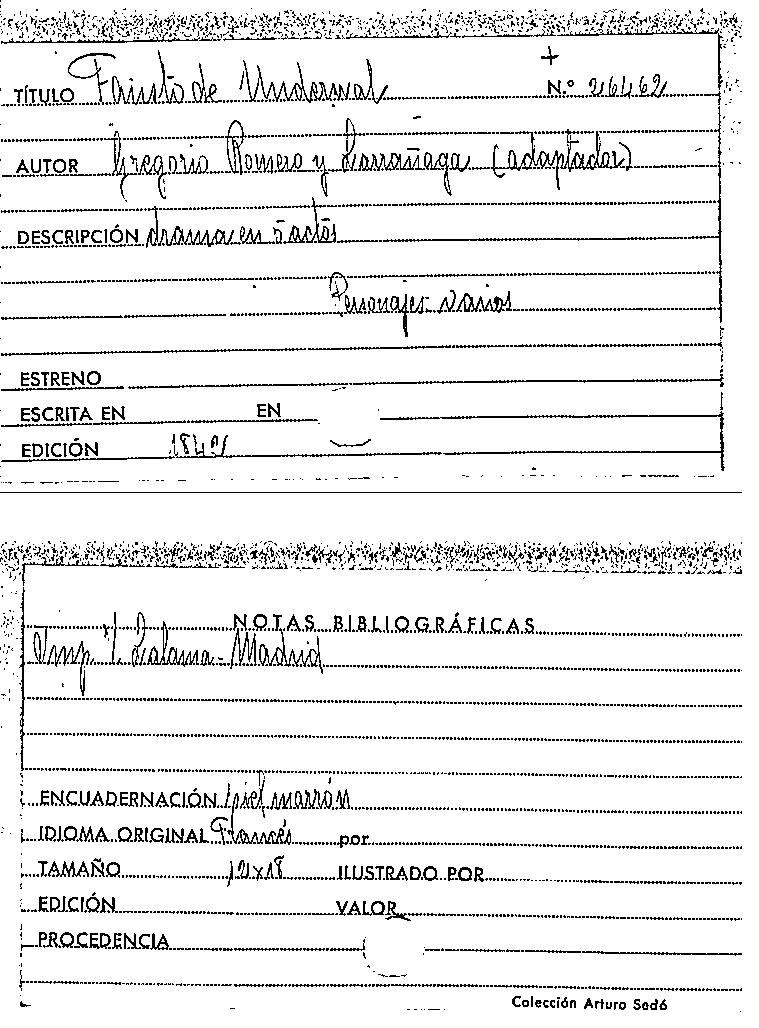 +
TÍTULO Fausto de Underwal N.º 26462
AUTOR Gregorio Romero y Larrañaga (adaptador)
DESCRIPCIÓN drama en 5 actos
Personajes varios
ESTRENO
ESCRITA EN EN
EDICIÓN
NOTAS BIBLIOGRÁFICAS
Imp. V. Lalama - Madrid
ENCUADERNACIÓN piel marrón
IDIOMA ORIGINAL Francés por
TAMAÑO ILUSTRADO POR
EDICIÓN VALOR
PROCEDENCIA
Colección Arturo Sedó